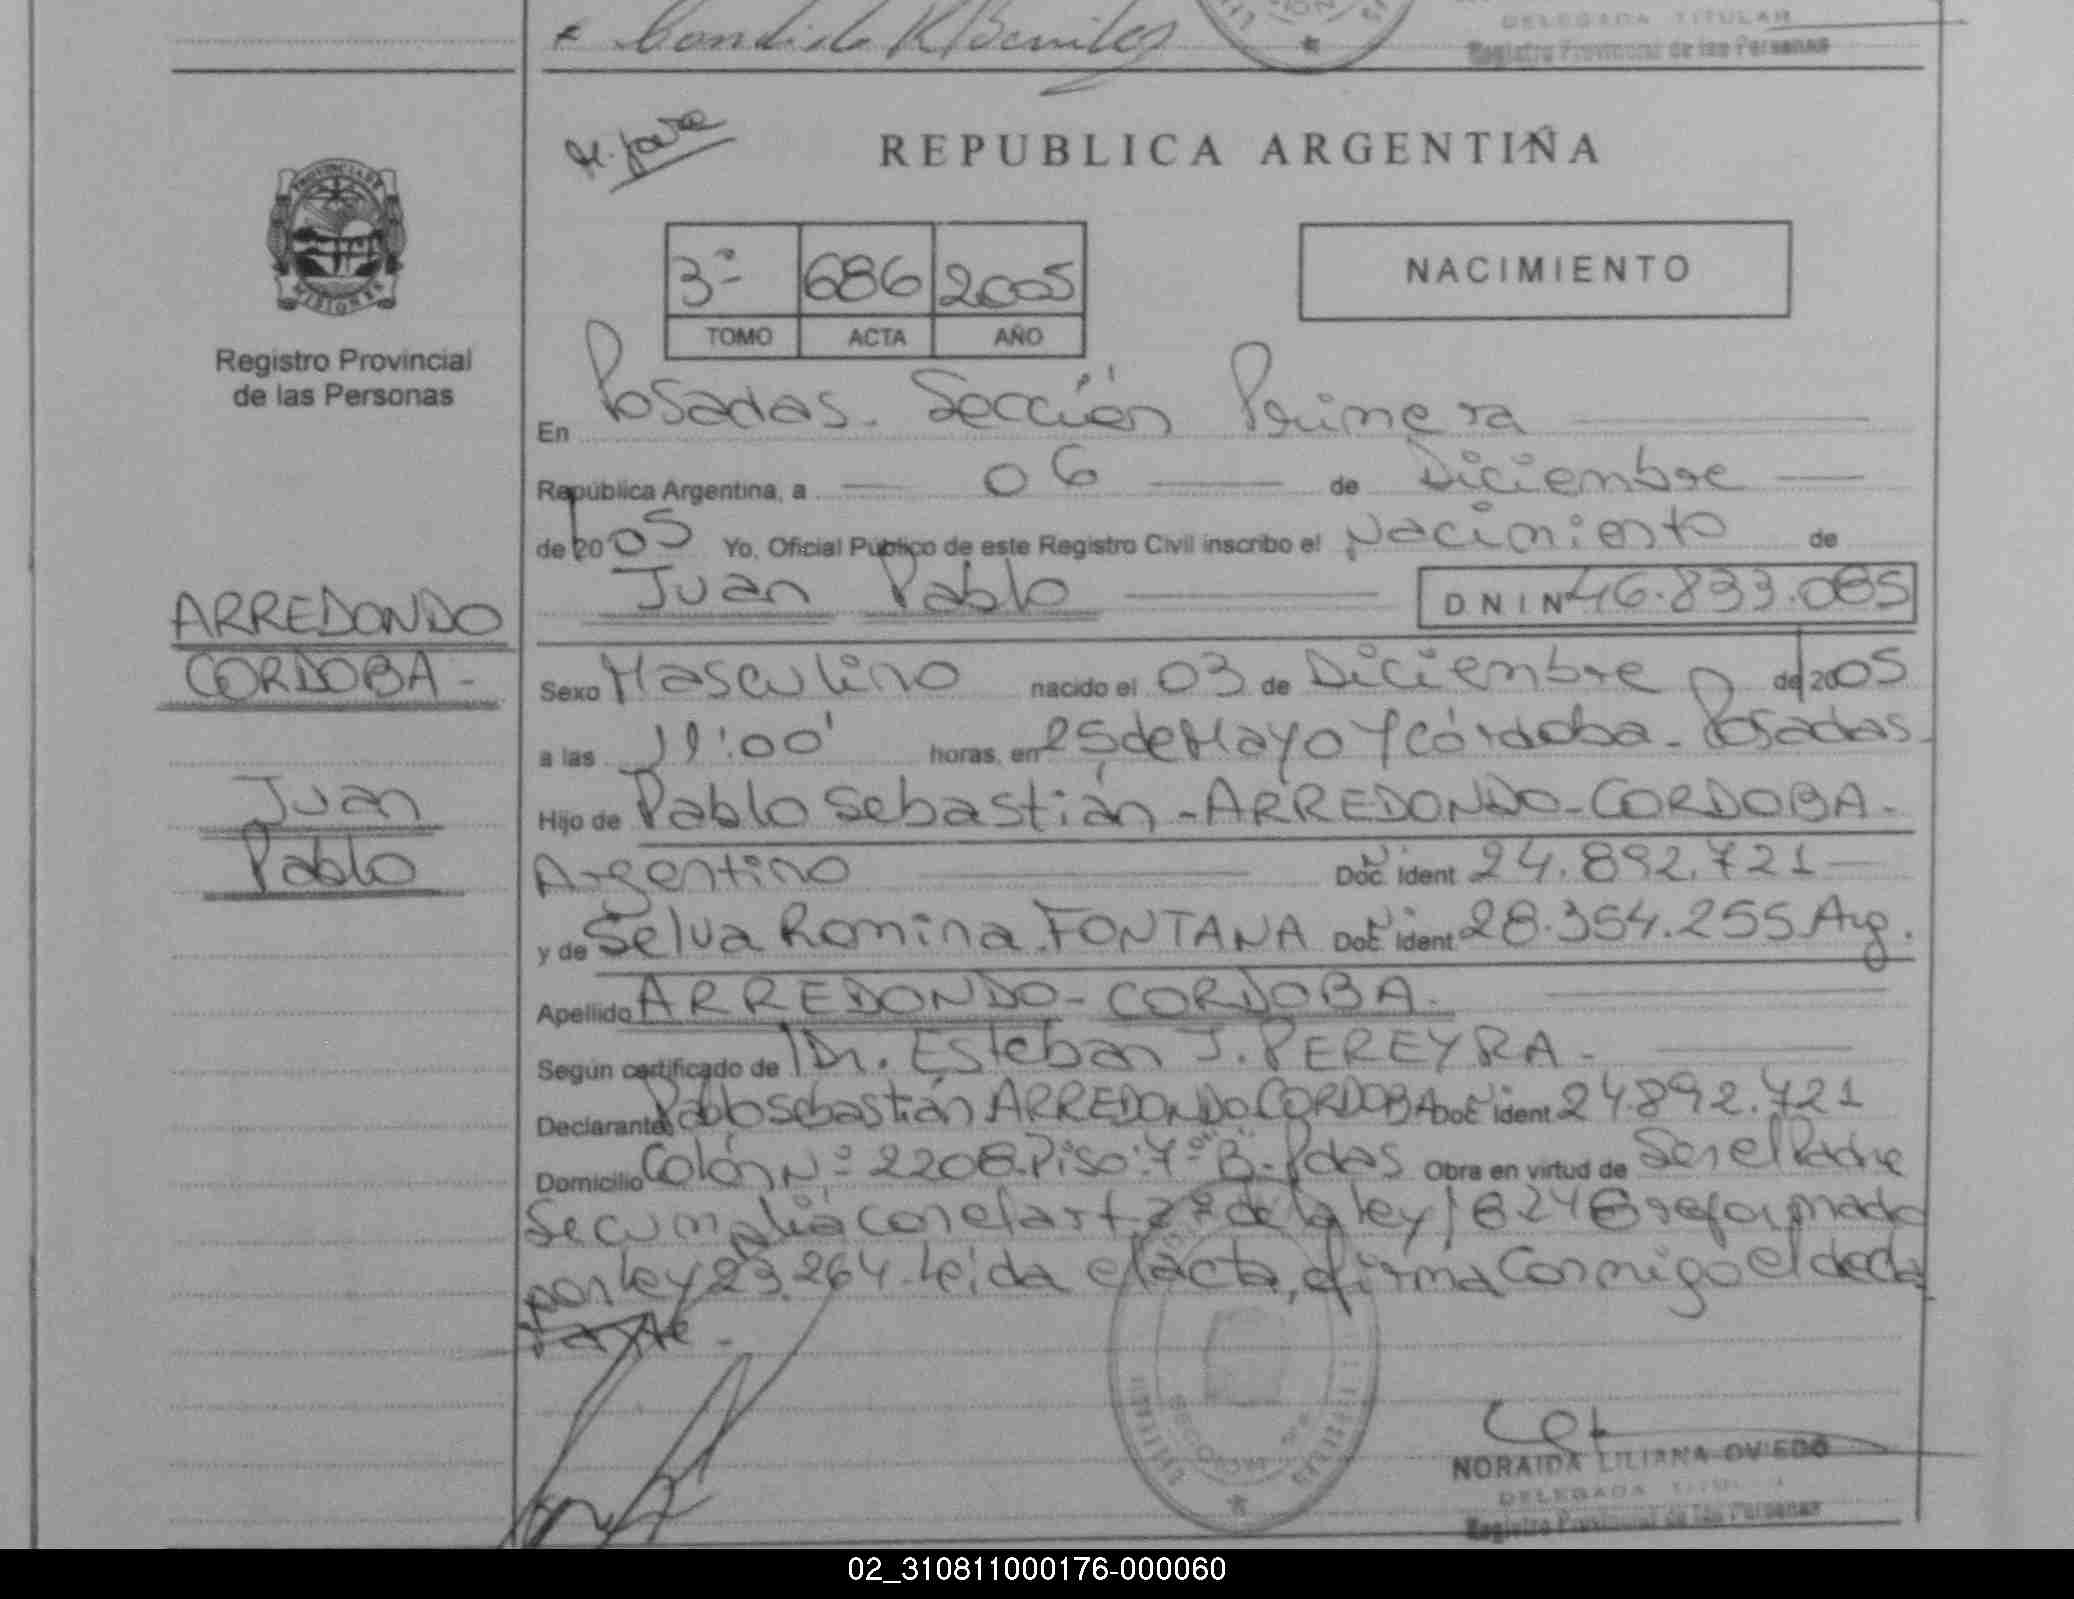 Candida R Benitez
DELEGADA TITULAR
Registro Provincial de las Personas
REPUBLICA ARGENTINA
PROVINCIA DE
MISIONES
Registro Provincial
de las Personas
3º 686 2005
TOMO ACTA AÑO
NACIMIENTO
En Posadas. Sección Primera
República Argentina, a 06 de Diciembre
de 2005 Yo, Oficial Público de este Registro Civil inscribo el Nacimiento de
Juan Pablo DNI Nº 46.833.085
ARREDONDO
CORDOBA -
Juan
Pablo
Sexo Masculino nacido el 03 de Diciembre de 2005
a las 11:00' horas, en 25 de Mayo y Córdoba - Posadas.
Hijo de Pablo Sebastián - ARREDONDO - CORDOBA -
Argentino Doc. Ident 24.892.721
y de Selva Romina FONTANA Doc. Ident. 28.354.255 Arg.
Apellido ARREDONDO - CORDOBA -
Según certificado de Dr. Esteban J. PEREYRA -
Declarante Pablo Sebastián ARREDONDO CORDOBA Doc. Ident 24.892.721
Domicilio Colón Nº 2208. Piso: 7º "B" - Pdas Obra en virtud de Ser el Padre
Se cumplió con el art. 2º de la ley 18248 reformada
por ley 23.264. Leída el acta, firma conmigo el decla
rante -
NORAIDA LILIANA OVIEDO
DELEGADA TITULAR
Registro Provincial de las Personas
02_310811000176-000060